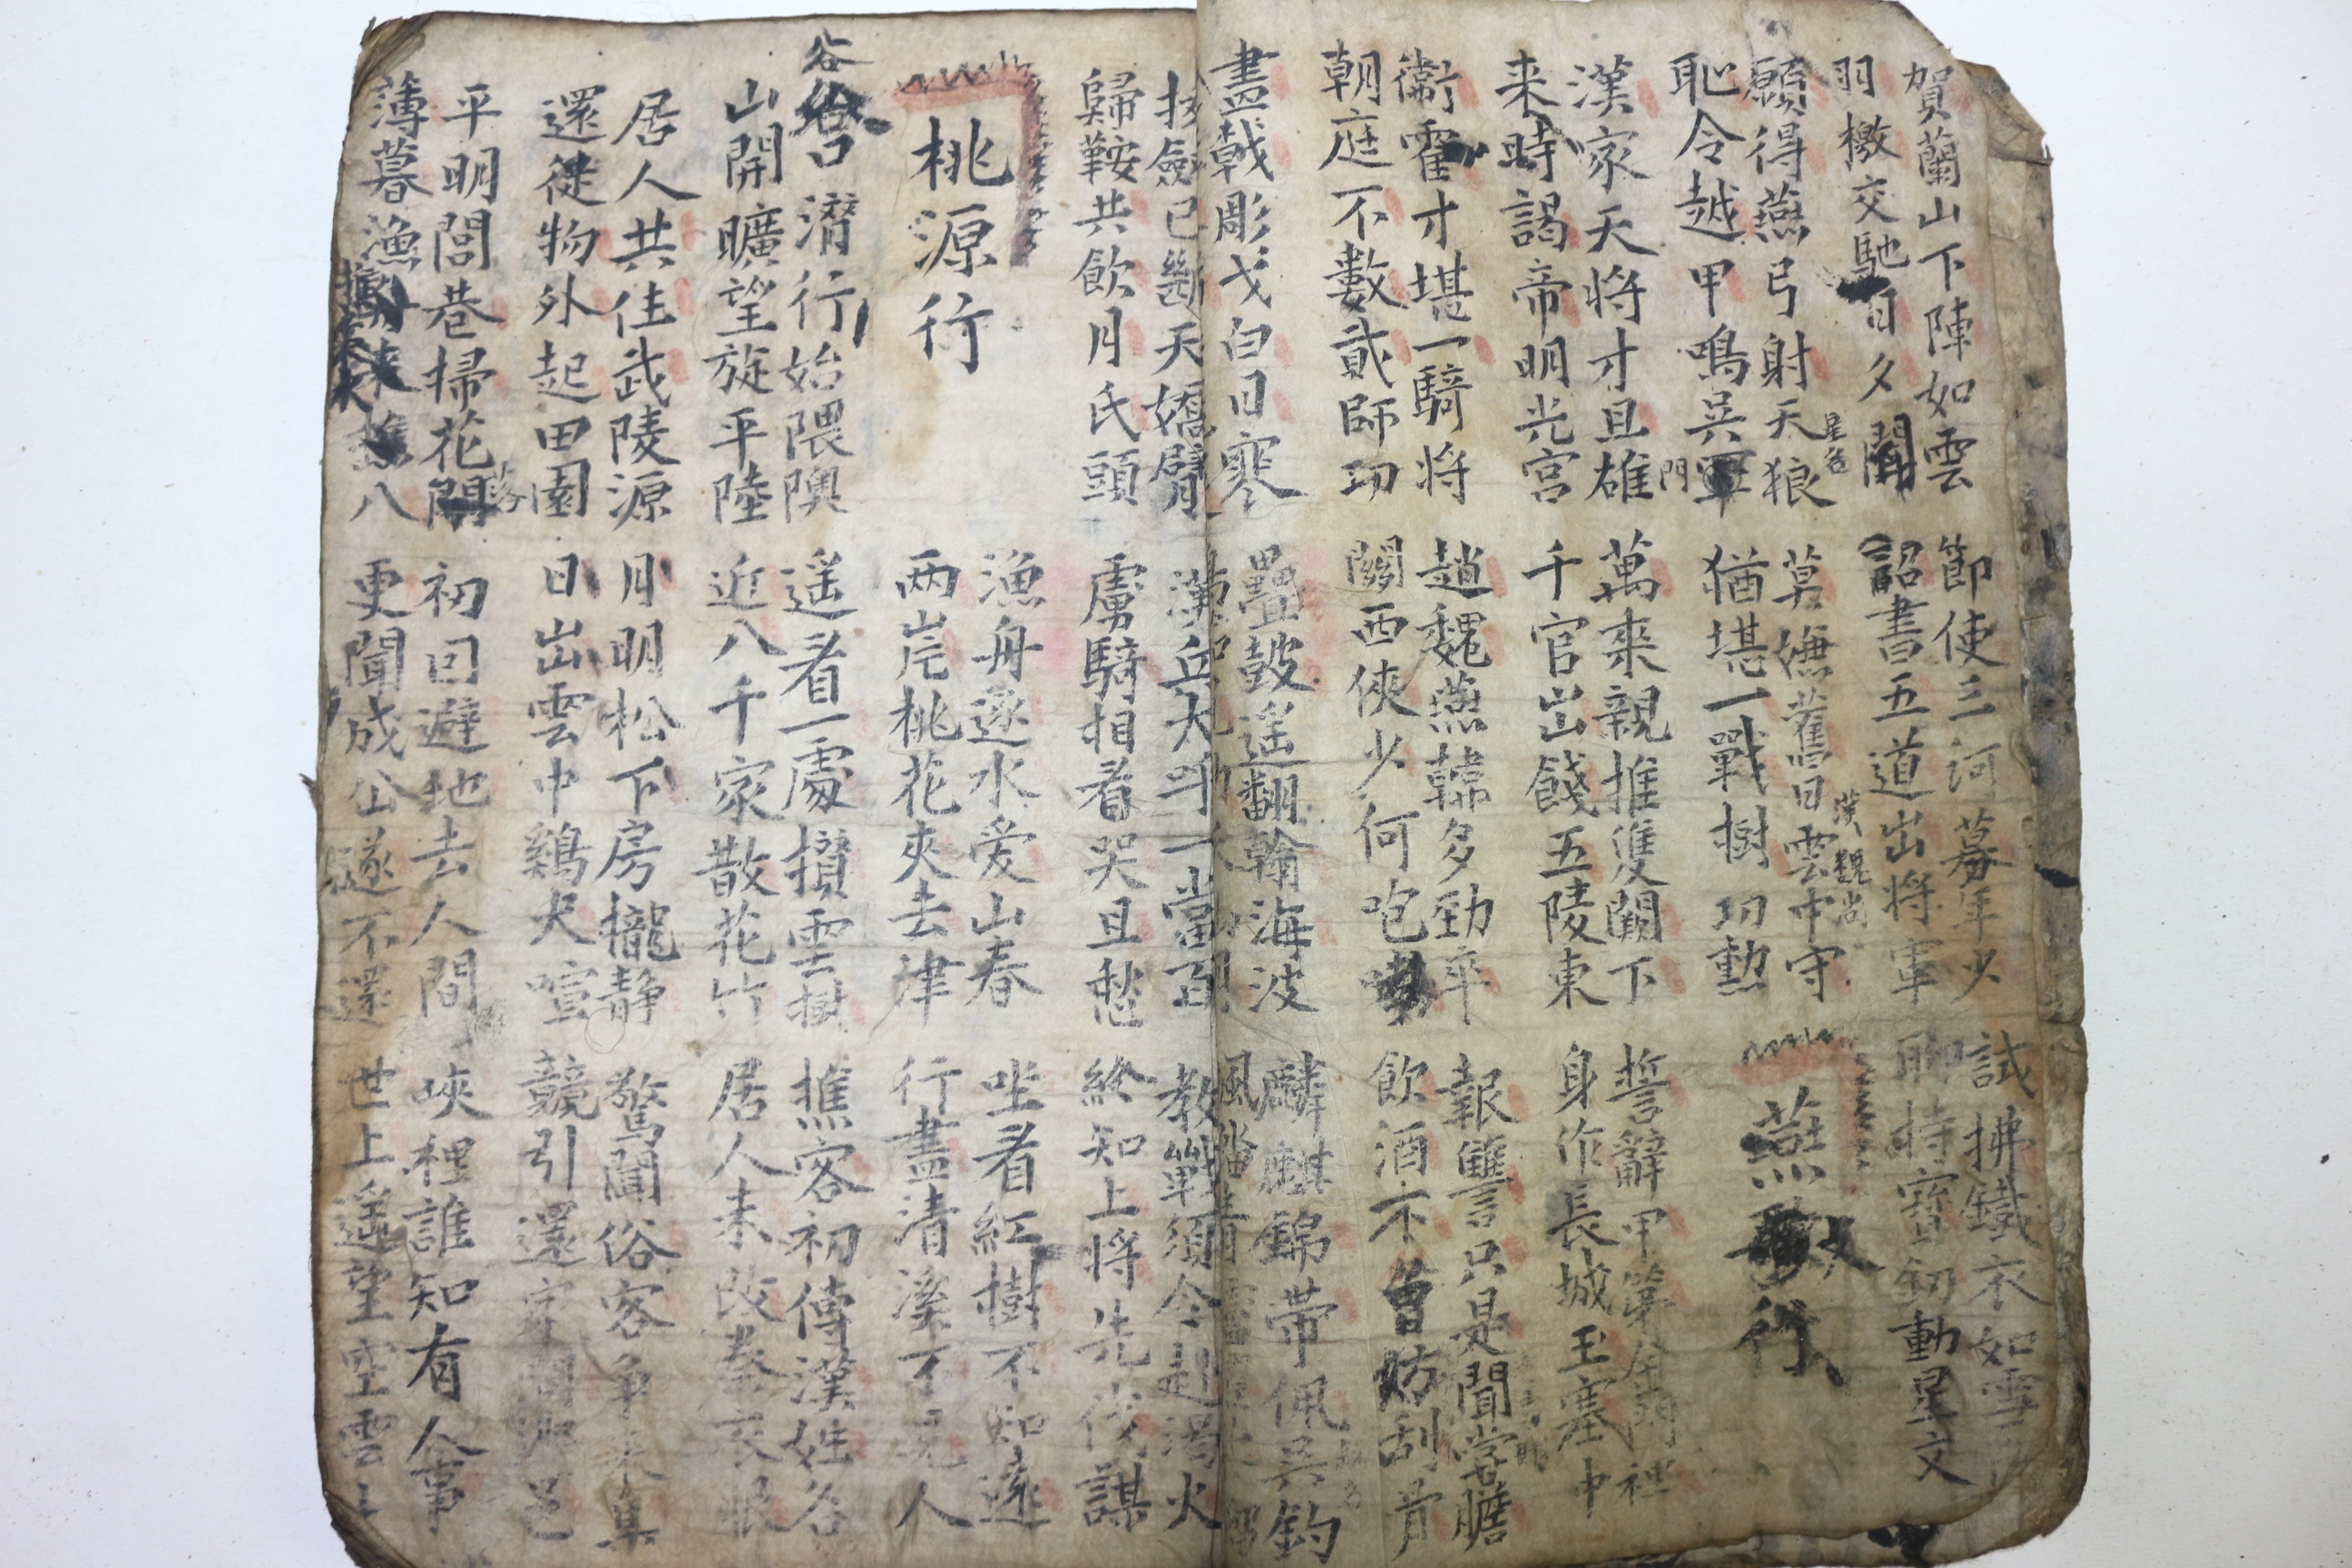 賀蘭山下陣如雲
羽檄交馳日夕聞
節使三河募年少
詔書五道出將軍
試拂鐵衣如雪
聊持寶釼動星文
願得燕弓射天狼
星名
恥令越甲鳴吳門
莫嫌舊日雲中守
漢魏尚
猶堪一戰樹功勲
燕支行
漢家天将才且雄
来時謁帝明光宮
萬乘親推雙闕下
千官出餞五陵東
誓辭甲第金門裡
身作長城玉塞中
衛霍才堪一騎将
朝庭不數貳師功
趙魏燕韓多勁卒
關西俠少何咆勃
報讐只是聞嘗膽
飲酒不曽妨刮骨
畫戟彫戈白日寒
疊鼓遥翻瀚海波
麟麒錦帶佩吳鈎
拔劍已斷天嬌臂
歸鞍共飲月氏頭
漢兵大呼一當百
虜騎相看哭且愁
教戰須令赴湯火
終知上将先伐謀
桃源行
漁舟逐水愛山春
两岸桃花夾去津
坐看紅樹不知遠
行盡清溪不見人
谷口潛行始隈隩
山開曠望旋平陸
遥看一處攅雲樹
近入千家散花竹
樵客初傳漢姓名
居人未改秦衣服
居人共住武陵源
還從物外起田園
月明松下房櫳静
日出雲中鷄犬喧
驚聞俗客爭來集
競引還家問都邑
平明閭巷掃花開
薄暮漁樵八
初因避地去人間
更聞成仙遂不還
峽裡誰知有人事
世上遥望空雲山